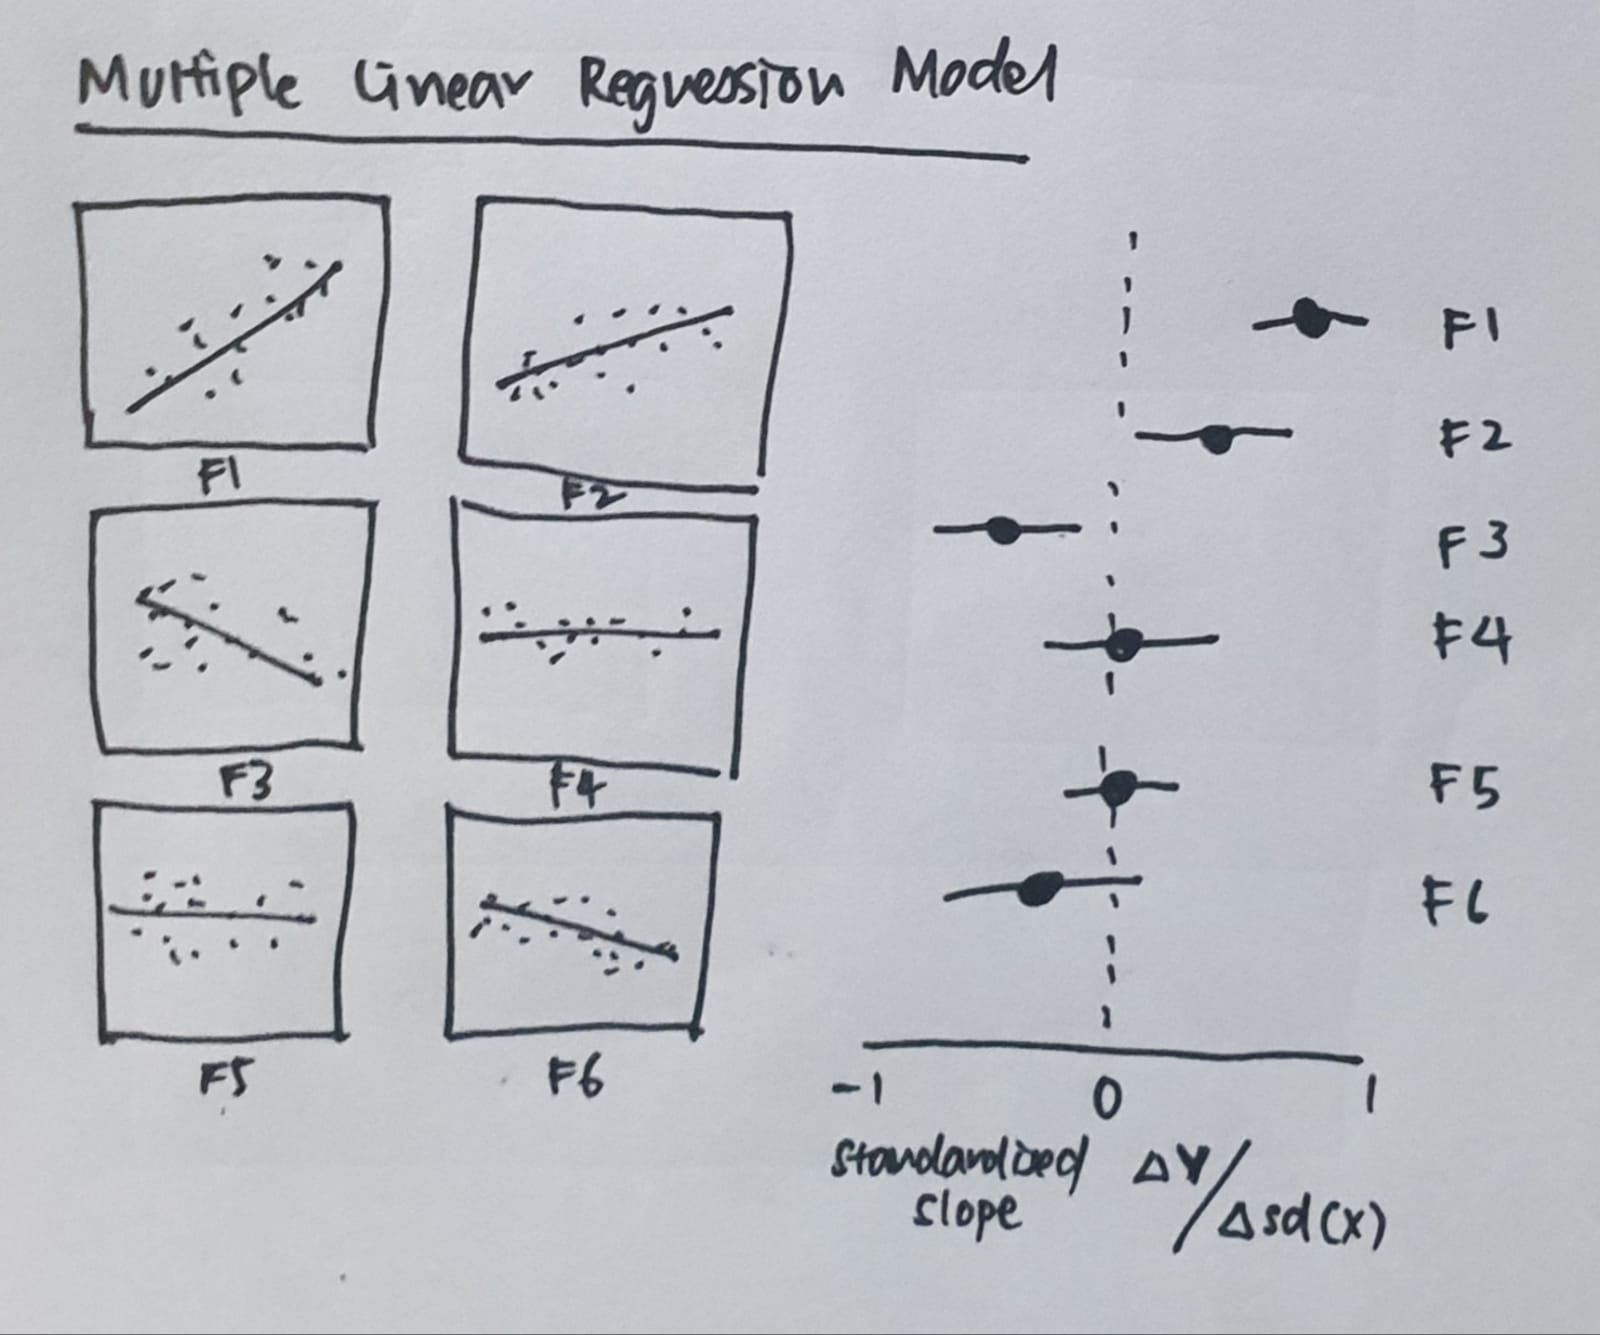 Multiple Linear Regression Model
F1
F2
F3
F4
F5
F6
F1
F2
F3
F4
F5
F6
-1 0 1
standardized ΔY/
slope Δsd(x)